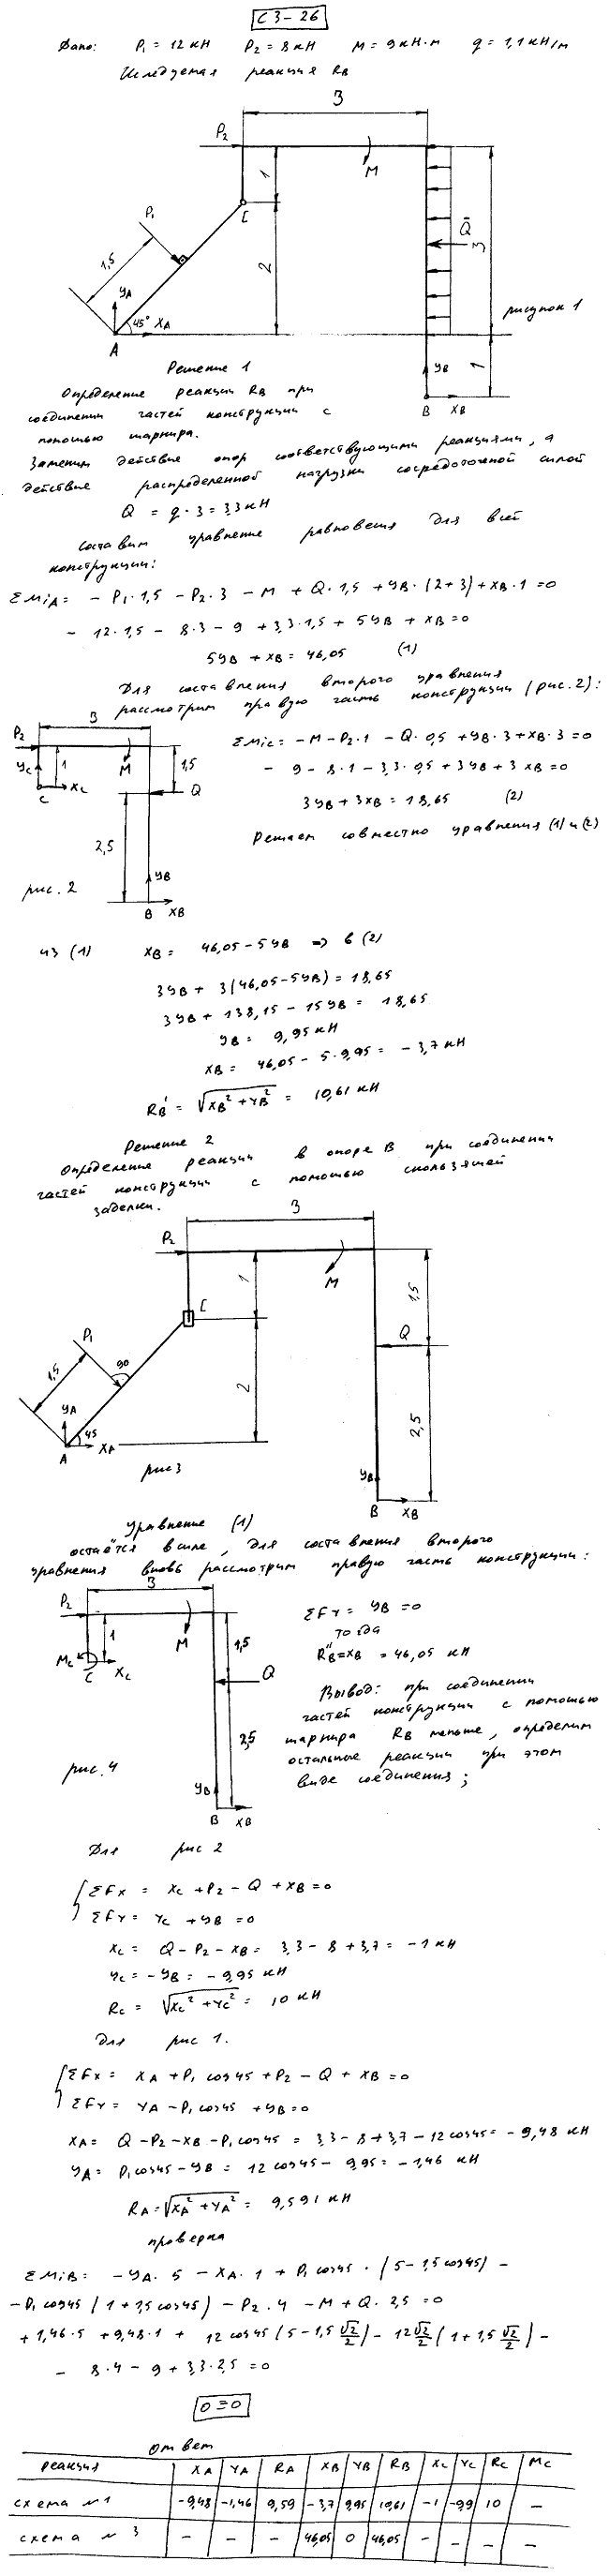 С3-26
Дано: P₁ = 12 кН P₂ = 8 кН M = 9 кН·м q = 1,1 кН/м
Иследуемая реакция RB
3
P₂
1
M
P₁
C
1,5
2
Q̄
3
YA
45° XA
A
рисунок 1
1
YB
B XB
Решение 1
Определение реакции RB при
соединении частей конструкции с
помошью шарнира.
Заменим действие опор соответствующими реакциями, а
действие распределенной нагрузки сосредоточеной силой
Q = q·3 = 3,3 кН
Составим уравнение равновесия для всей
конструкции:
ΣMiA = - P₁·1,5 - P₂·3 - M + Q·1,5 + YB·(2+3) + XB·1 = 0
- 12·1,5 - 8·3 - 9 + 3,3·1,5 + 5YB + XB = 0
5YB + XB = 46,05 (1)
Для составления второго уравнения
рассмотрим правую часть конструкции (рис.2):
3
P₂
YC 1
M
1,5
C XC
Q
2,5
YB
B XB
рис. 2
ΣMiC = - M - P₂·1 - Q·0,5 + YB·3 + XB·3 = 0
- 9 - 8·1 - 3,3·0,5 + 3YB + 3XB = 0
3YB + 3XB = 18,65 (2)
Решаем совместно уравнения (1) и (2)
из (1) XB = 46,05 - 5YB => в (2)
3YB + 3(46,05 - 5YB) = 18,65
3YB + 138,15 - 15YB = 18,65
YB = 9,95 кН
XB = 46,05 - 5·9,95 = - 3,7 кН
RB' = √(XB² + YB²) = 10,61 кН
Решение 2
Определение реакции в опоре B при соединении
частей конструкции с помошью скользящей
заделки.
3
P₂
1
M
C
1,5
P₁
90
Q
1,5
2
2,5
YA
45
A XA
рис3
YB
B XB
Уравнение (1)
остаётся в силе, для составления второго
уравнения вновь рассмотрим правую часть конструкции:
3
P₂
1
M
1,5
MC
C XC
Q
2,5
YB
рис. 4
B XB
ΣFY = YB = 0
тогда
RB''=XB = 46,05 кН
Вывод: при соединении
частей конструкции с помошью
шарнира RB меньше, определим
остальные реакции при этом
виде соединения;
Для рис 2
{ΣFX = XC + P₂ - Q + XB = 0
ΣFY = YC + YB = 0
XC = Q - P₂ - XB = 3,3 - 8 + 3,7 = - 1 кН
YC = - YB = - 9,95 кН
RC = √(XC² + YC²) = 10 кН
Для рис 1.
{ΣFX = XA + P₁ cos45 + P₂ - Q + XB = 0
ΣFY = YA - P₁ cos45 + YB = 0
XA = Q - P₂ - XB - P₁ cos45 = 3,3 - 8 + 3,7 - 12 cos45 = - 9,48 кН
YA = P₁ cos45 - YB = 12 cos45 - 9,95 = - 1,46 кН
RA = √(XA² + YA²) = 9,591 кН
проверка
ΣMiB = - YA·5 - XA·1 + P₁ cos45·(5 - 1,5 cos45) -
- P₁ cos45 (1 + 1,5 cos45) - P₂·4 - M + Q·2,5 = 0
+ 1,46·5 + 9,48·1 + 12 cos45 (5 - 1,5 √2/2) - 12 √2/2 (1 + 1,5 √2/2) -
- 8·4 - 9 + 3,3·2,5 = 0
0 ≡ 0
Ответ
реакция XA YA RA XB YB RB XC YC RC MC
схема №1 -9,48 -1,46 9,59 -3,7 9,95 10,61 -1 -9,9 10 -
схема №3 - - - 46,05 0 46,05 - - - -